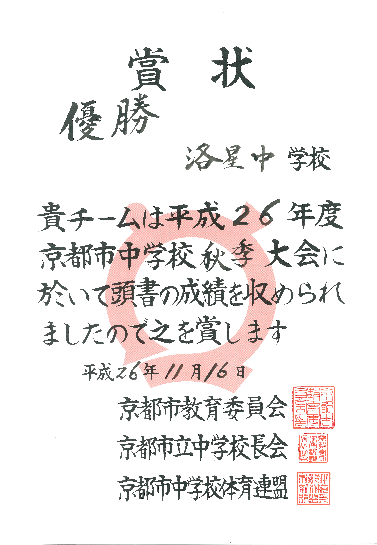 賞状
優勝
洛星中学校
貴チームは平成26年度
京都市中学校秋季大会に
於いて頭書の成績を収められ
ましたので之を賞します
平成26年11月16日
京都市教育委員会
京都市立中学校長会
京都市中学校体育連盟